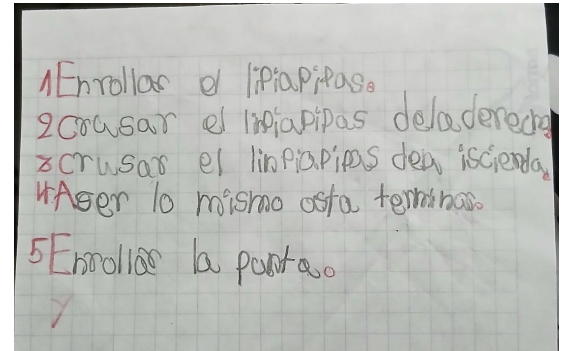 1 Enrollar el lipiapipas.
2 Crusar el linpiapipas deladerecha
3 crusar el linpiapipas dela iscierda,
4 Aser lo mismo osta terminar.
5 Enrollar la punta.